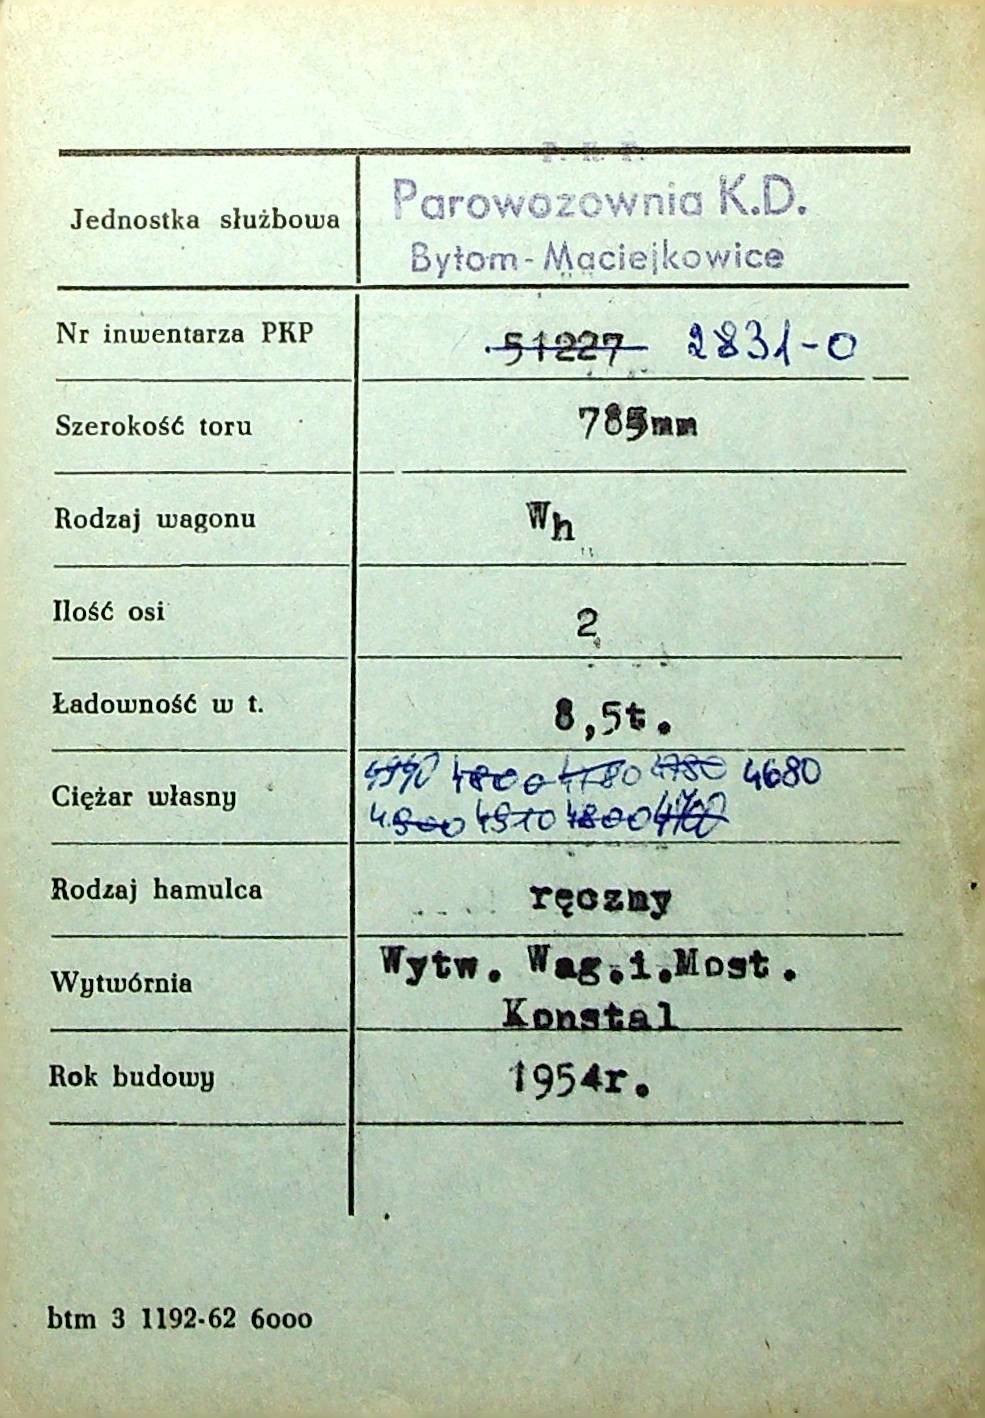 P. K. P.
Jednostka służbowa Parowozownia K.D.
Bytom - Maciejkowice
Nr inwentarza PKP 51227 2831-0
Szerokość toru 785mm
Rodzaj wagonu Wh
Ilość osi 2
Ładowność w t. 8,5t.
4800 4780 4780 4680
Ciężar własny
4900 4910 4800 4700
Rodzaj hamulca ręczny
Wytwórnia Wytw. Wag.i.Most.
Konstal
Rok budowy 1954r.
btm 3 1192-62 6000